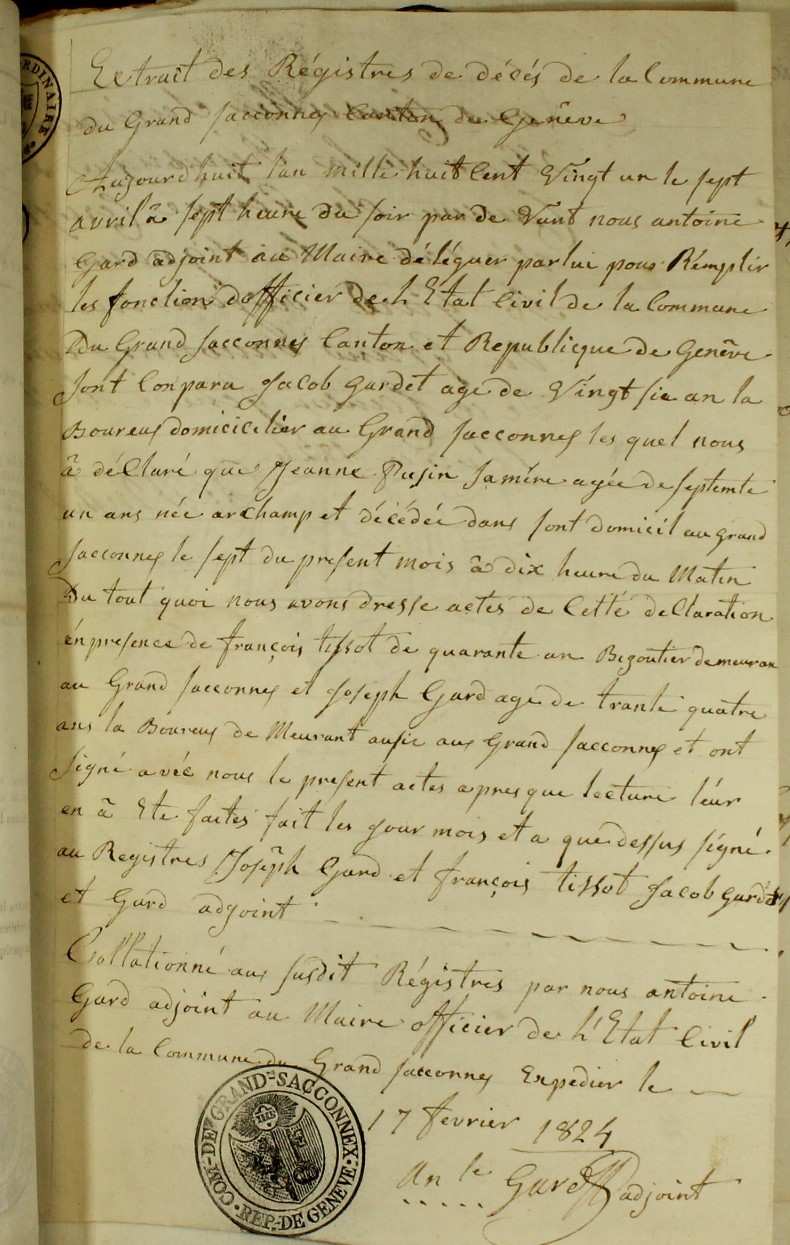 RDINAIRE
Extrait des Régistres de décés de la Commune
du Grand Sacconnex Canton de Genêve
Aujourdhuit l'an mille huit Cent Vingt un le sept
avril â sept heure du soir par de Vant nous antoine
Gard adjoint au Maire déléguer par lui pour Rémplir
les fonction dofficier de l Etat Civil de la Commune
Du Grand Sacconnex Canton et Republicque de Genêve
Sont Conparu Jacob Gardet age de Vingt sie an la
Boureus domicicilier au Grand Sacconnex les quel nous
â déClaré que Jeanne Pusin Samére agée de septente
un ans née archamp et décédée dans sont domicil au grand
Sacconnex le sept du present mois â dix heure du Matin
Du tout quoi nous avons dresse actes de Cette declaration
én presence de françois tissot de quarante an Bizoutier demeuran
au Grand Sacconnex et Joseph Gard age de trante quatre
ans la Boureus de Meurant ausie aus Grand Sacconnex et ont
Signé avéc nous le present actes apres que lecture léur
en â Ete faites fait les Jour mois et a que dessus signé
au Registres Josêph Gard et françois tissot Jacob Gardet
et Gard adjoint
Collationné aus susdit Régistres par nous antoine
Gard adjoint au Maire officier de l'Etat Civil
de la Commune du Grand Sacconnex Expédier le
17 fevrier 1824
An le Gard adjoint
COM: DE GRAND-SACCONNEX. REP. DE GENEVE.